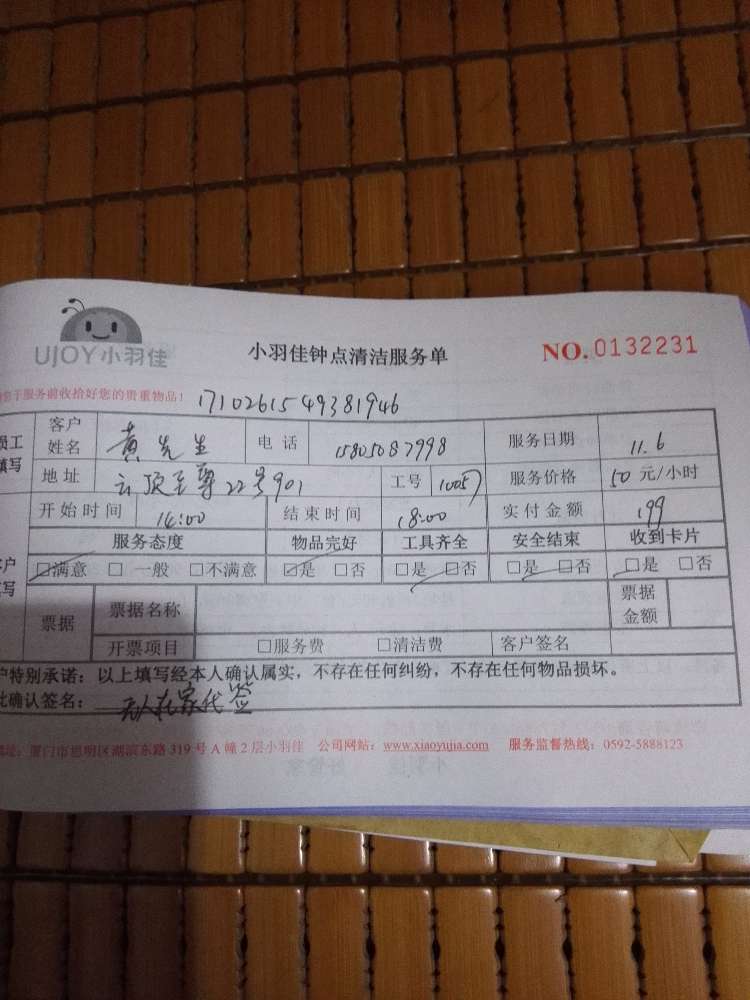 UJOY小羽佳 小羽佳钟点清洁服务单 NO.0132231
于服务前收拾好您的贵重物品! 1710261549381946
员工填写 客户姓名 黄先生 电话 15805087998 服务日期 11.6
地址 云顶至尊22号901 工号 10057 服务价格 50元/小时
开始时间 14:00 结束时间 18:00 实付金额 199
服务态度 物品完好 工具齐全 安全结束 收到卡片
□满意 □一般 □不满意 □是 □否 □是 □否 □是 □否 □是 □否
票据 票据名称 票据金额
开票项目 □服务费 □清洁费 客户签名
户特别承诺:以上填写经本人确认属实,不存在任何纠纷,不存在任何物品损坏。
此确认签名: 无人在家代签
地址:厦门市思明区湖滨东路319号A幢2层小羽佳 公司网站:www.xiaoyujia.com 服务监督热线:0592-5888123